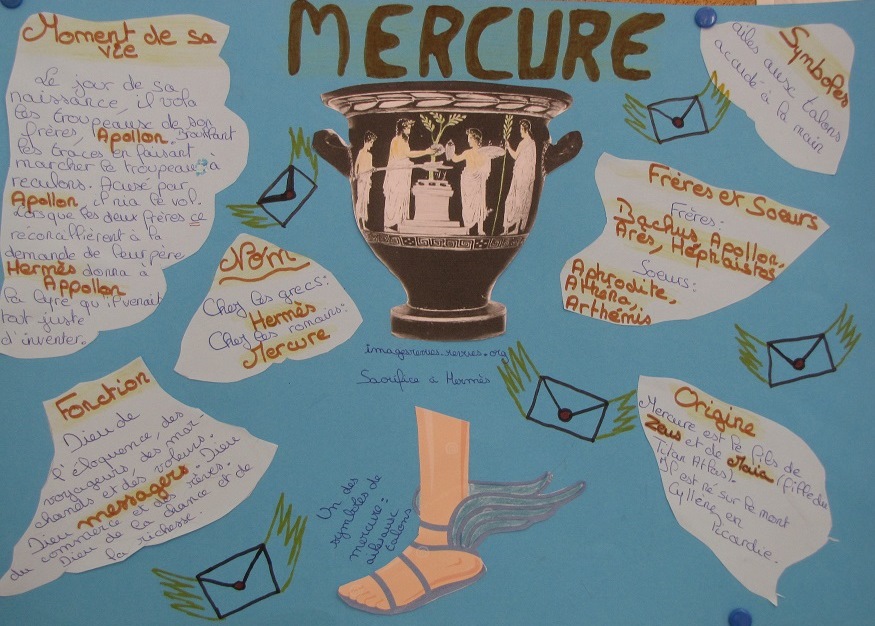 MERCURE
Moment de sa
vie
Le jour de sa
naissance, il vola
les troupeaux de son
frères, Apollon. Brouillant
les traces en faisant
marcher le troupeaux à
reculons. Acusé par
Apollon, il nia le vol.
Lorsque les deux frères ce
réconcillièrent à la
demande de leur père,
Hermès donna à
Appollon
la lyre qu'il venait
tout juste
d'inventer.
Nom
Chez les grecs:
Hermès
Chez les romains:
Mercure
Fonction
Dieu de
l'éloquence, des
voyageurs, des mar-
chands et des voleurs.
Dieu messagers. Dieu
du commerce et des rêves.
Dieu de la chance et de
la richesse.
imagesrevues.revues.org
Sacrifice à Hermès
Un des
symboles de
mercure:
ailes aux
talons
Symboles
ailes aux talons
à la main
Frères et Soeurs
Frères:
Bachus, Apollon,
Arès, Héphaïstos
Soeurs:
Aphrodite,
Athéna,
Arthémis
Origine
Mercure est le fils de
Zeus et de Maia (fille du
Titan Atlas).
Il est né sur le mont
Cyllène, en
Picardie.